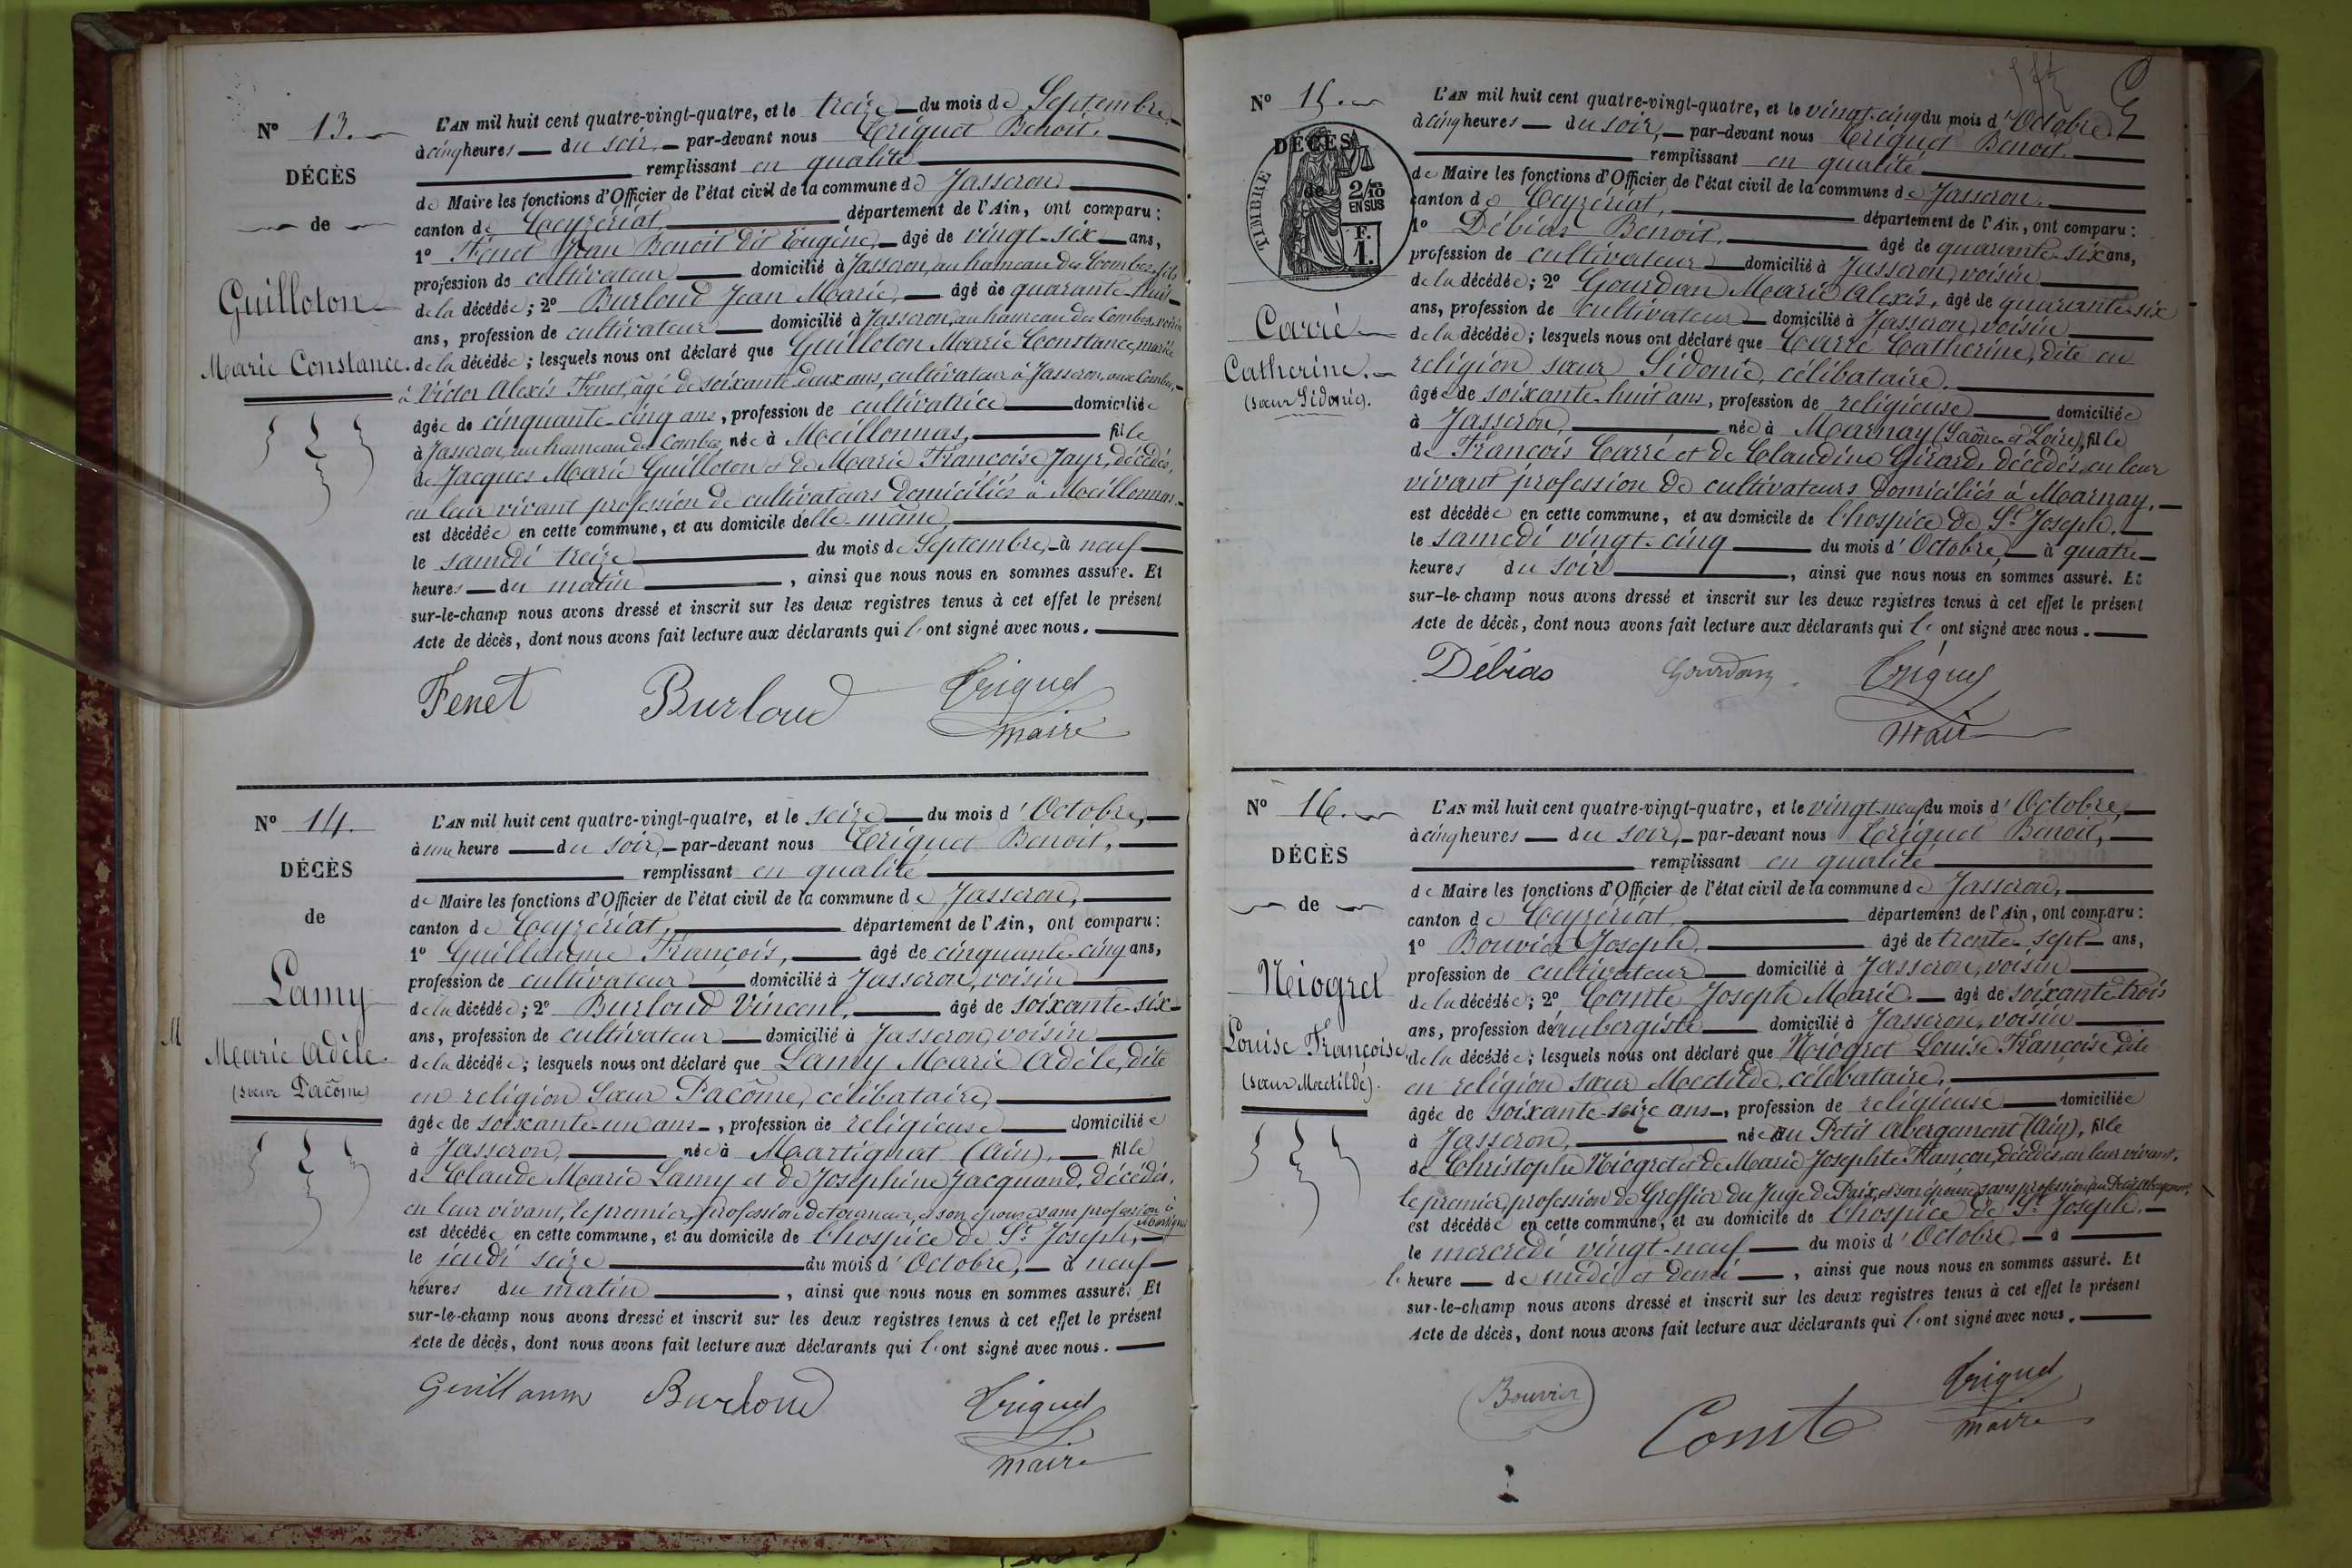 N° 13.
DÉCÈS
de
Guilloton
Marie Constance.
L'AN mil huit cent quatre-vingt-quatre, et le treize du mois de Septembre,
à cinq heures du soir, par-devant nous Triquet Benoit,
remplissant en qualité
de Maire les fonctions d'Officier de l'état civil de la commune de Jasseron,
canton de Ceyzériat, département de l'Ain, ont comparu :
1° Fenet Jean Benoit dit Eugène, âgé de vingt-six ans,
profession de cultivateur domicilié à Jasseron, au hameau des Combes, fils
de la décédée ; 2° Burloud Jean Marie, âgé de quarante-huit
ans, profession de cultivateur domicilié à Jasseron, au hameau des Combes, voisin
de la décédée ; lesquels nous ont déclaré que Guilloton Marie Constance, mariée
à Victor Alexis Fenet, âgé de soixante deux ans, cultivateur à Jasseron, aux Combes,
âgée de cinquante-cinq ans, profession de cultivatrice domiciliée
à Jasseron, au hameau des Combes, née à Meillonnas, fille
de Jacques Marie Guilloton et de Marie Françoise Jayr, décédés,
en leur vivant profession de cultivateurs domiciliés à Meillonnas.
est décédée en cette commune, et au domicile d'elle-même,
le samedi treize du mois de Septembre, à neuf
heures du matin, ainsi que nous nous en sommes assuré. Et
sur-le-champ nous avons dressé et inscrit sur les deux registres tenus à cet effet le présent
Acte de décès, dont nous avons fait lecture aux déclarants qui l'ont signé avec nous.
Fenet Burloud Triquet
maire
N° 14.
DÉCÈS
de
Lamy
Marie Adèle.
(sœur Pacôme)
M
L'AN mil huit cent quatre-vingt-quatre, et le seize du mois d'Octobre,
à une heure du soir, par-devant nous Triquet Benoit,
remplissant en qualité
de Maire les fonctions d'Officier de l'état civil de la commune de Jasseron,
canton de Ceyzériat, département de l'Ain, ont comparu :
1° Guillaume François, âgé de cinquante-cinq ans,
profession de cultivateur domicilié à Jasseron, voisin
de la décédée ; 2° Burloud Vincent, âgé de soixante-six
ans, profession de cultivateur domicilié à Jasseron, voisin
de la décédée ; lesquels nous ont déclaré que Lamy Marie Adèle, dite
en religion Sœur Pacôme, célibataire,
âgée de soixante-un ans, profession de religieuse domiciliée
à Jasseron, née à Martignat (Ain), fille
de Claude Marie Lamy et de Joséphine Jacquand, décédés,
en leur vivant, le premier, profession de tourneur, et son épouse sans profession à
Martignat
est décédée en cette commune, et au domicile de l'hospice de St Joseph,
le jeudi seize du mois d'Octobre, à neuf
heures du matin, ainsi que nous nous en sommes assuré. Et
sur-le-champ nous avons dressé et inscrit sur les deux registres tenus à cet effet le présent
Acte de décès, dont nous avons fait lecture aux déclarants qui l'ont signé avec nous.
Guillaume Burloud Triquet
maire
N° 15.
DÉCÈS
de
TIMBRE
2/10
EN SUS
F.
1.
Carré
Catherine.
(sœur Sidonie).
L'AN mil huit cent quatre-vingt-quatre, et le vingt-cinq du mois d'Octobre
à cinq heures du soir, par-devant nous Triquet Benoit,
remplissant en qualité
de Maire les fonctions d'Officier de l'état civil de la commune de Jasseron,
canton de Ceyzériat, département de l'Ain, ont comparu :
1° Débias Benoit, âgé de quarante-six ans,
profession de cultivateur domicilié à Jasseron, voisin
de la décédée ; 2° Gourdan Marie Alexis, âgé de quarante-six
ans, profession de cultivateur domicilié à Jasseron, voisin
de la décédée ; lesquels nous ont déclaré que Carré Catherine, dite en
religion sœur Sidonie, célibataire.
âgée de soixante-huit ans, profession de religieuse domiciliée
à Jasseron, née à Marnay (Saône et Loire), fille
de François Carré et de Claudine Girard, décédés, en leur
vivant profession de cultivateurs domiciliés à Marnay,
est décédée en cette commune, et au domicile de l'hospice de St Joseph,
le samedi vingt-cinq du mois d'Octobre, à quatre
heures du soir, ainsi que nous nous en sommes assuré. Et
sur-le-champ nous avons dressé et inscrit sur les deux registres tenus à cet effet le présent
Acte de décès, dont nous avons fait lecture aux déclarants qui l'ont signé avec nous.
Débias Gourdan Triquet
maire
N° 16.
DÉCÈS
de
Niogret
Louise Françoise
(sœur Mectilde).
L'AN mil huit cent quatre-vingt-quatre, et le vingt-neuf du mois d'Octobre,
à cinq heures du soir, par-devant nous Triquet Benoit,
remplissant en qualité
de Maire les fonctions d'Officier de l'état civil de la commune de Jasseron,
canton de Ceyzériat, département de l'Ain, ont comparu :
1° Bouvier Joseph, âgé de trente-sept ans,
profession de cultivateur domicilié à Jasseron, voisin
de la décédée ; 2° Comte Joseph Marie, âgé de soixante trois
ans, profession d'aubergiste domicilié à Jasseron, voisin
de la décédée ; lesquels nous ont déclaré que Niogret Louise Françoise, dite
en religion sœur Mectilde, célibataire,
âgée de soixante-seize ans, profession de religieuse domiciliée
à Jasseron, née au Petit Abergement (Ain), fille
de Christophe Niogret et de Marie Josephte Françon, décédés, en leur vivant,
le premier, profession de Greffier du Juge de Paix, et son épouse sans profession, au Petit Abergement,
est décédée en cette commune, et au domicile de l'hospice de St Joseph,
le mercredi vingt-neuf du mois d'Octobre, à
l'heure de midi et demi, ainsi que nous nous en sommes assuré. Et
sur-le-champ nous avons dressé et inscrit sur les deux registres tenus à cet effet le présent
Acte de décès, dont nous avons fait lecture aux déclarants qui l'ont signé avec nous.
Bouvier Comte Triquet
maire